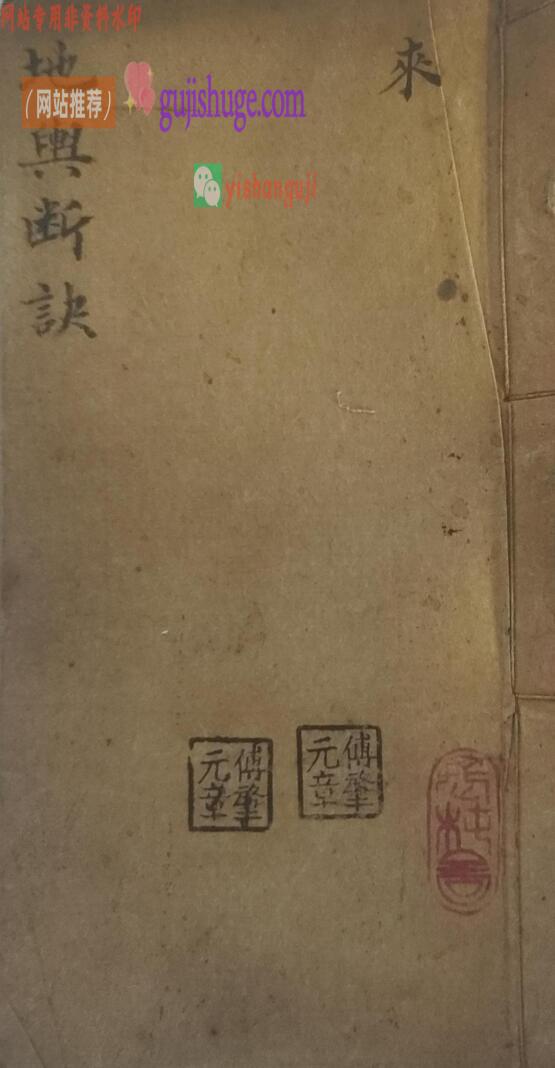 网站专用非资料水印
來
地輿断訣
（网站推荐）
gujishuge.com
yishanguji
傅肇
元章
傅肇
元章